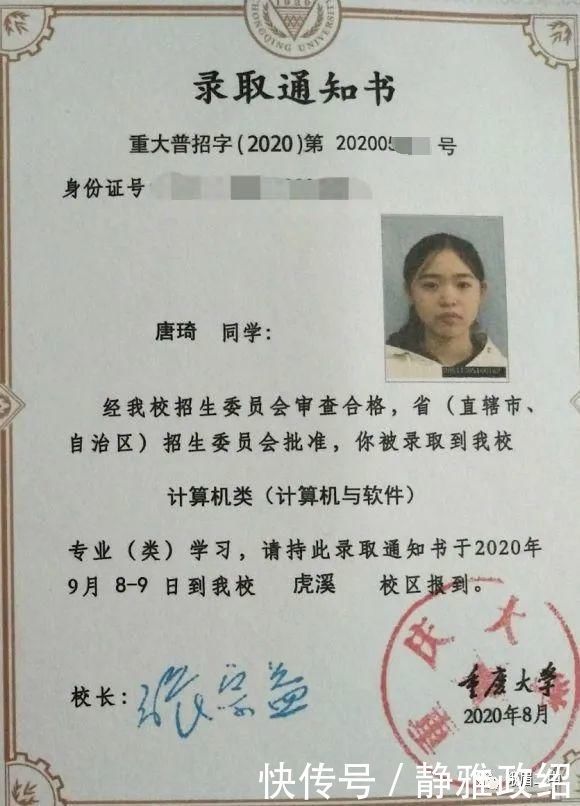 CHONGQING UNIVERSITY
录取通知书
重大普招字(2020)第 202005 号
身份证号
唐琦 同学:
经我校招生委员会审查合格，省（直辖市、
自治区）招生委员会批准，你被录取到我校
计算机类（计算机与软件）
专业（类）学习，请持此录取通知书于2020年
9月 8-9 日到我校 虎溪 校区报到。
校长: 张宗益
重庆大学
重庆大学
2020年8月
快传号 / 静雅政绍